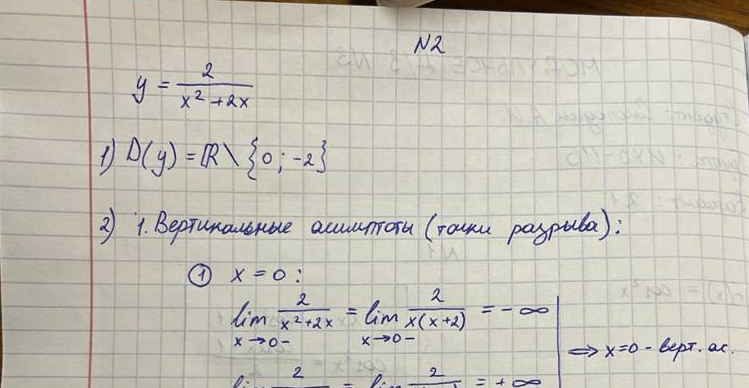 N2
y = 2/(x² + 2x)
1) D(y) = ℝ \ {0; -2}
2) 1. Вертикальные асимптоты (точки разрыва):
① x = 0:
lim x→0- 2/(x² + 2x) = lim x→0- 2/(x(x+2)) = -∞
⇒ x=0 - верт. ас.
lim 2 = lim 2 = +∞